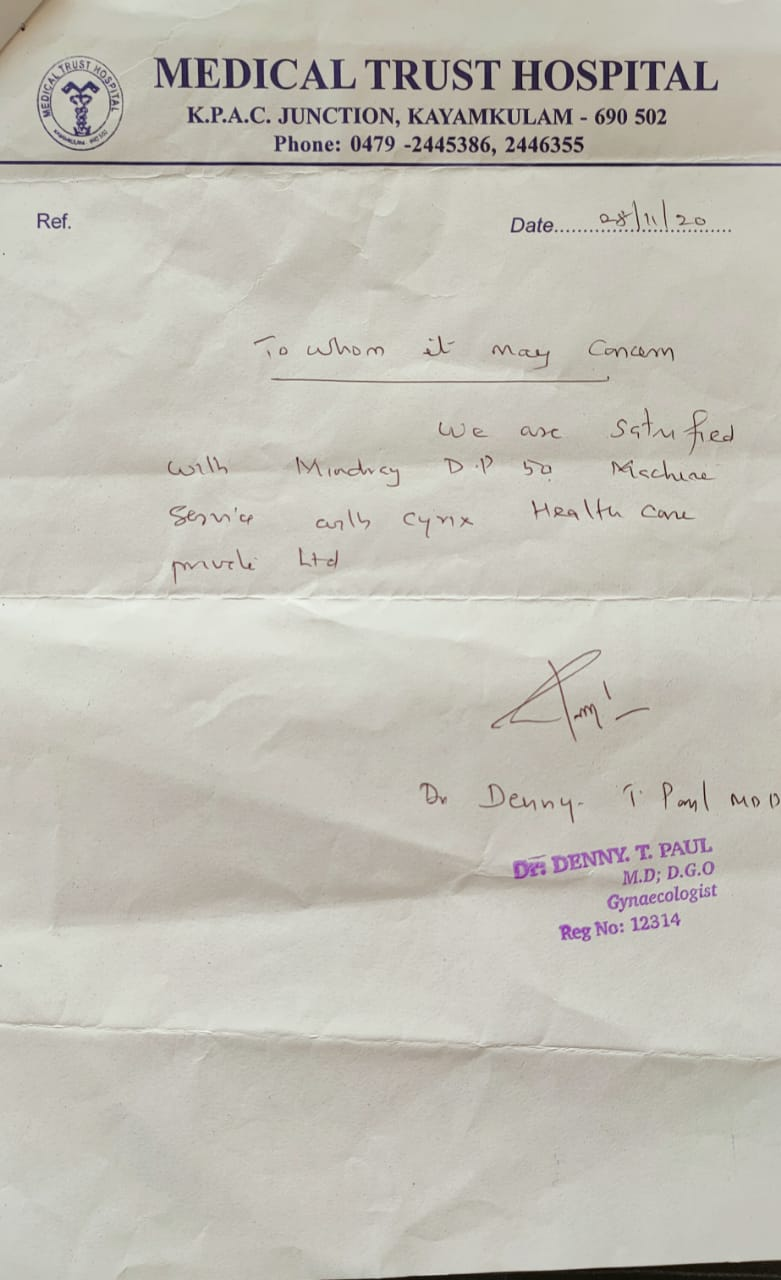 MEDICAL TRUST HOSPITAL
KAYAMKULAM - 690 502
MEDICAL TRUST HOSPITAL
K.P.A.C. JUNCTION, KAYAMKULAM - 690 502
Phone: 0479 -2445386, 2446355
Ref.
Date 28/11/20
To whom it may Concern
We are Satisfied
with Mindray D.P 50 Machine
Service with Cyrix Health Care
private Ltd
Dr Denny. T. Paul MD D
Dr: DENNY. T. PAUL
M.D; D.G.O
Gynaecologist
Reg No: 12314